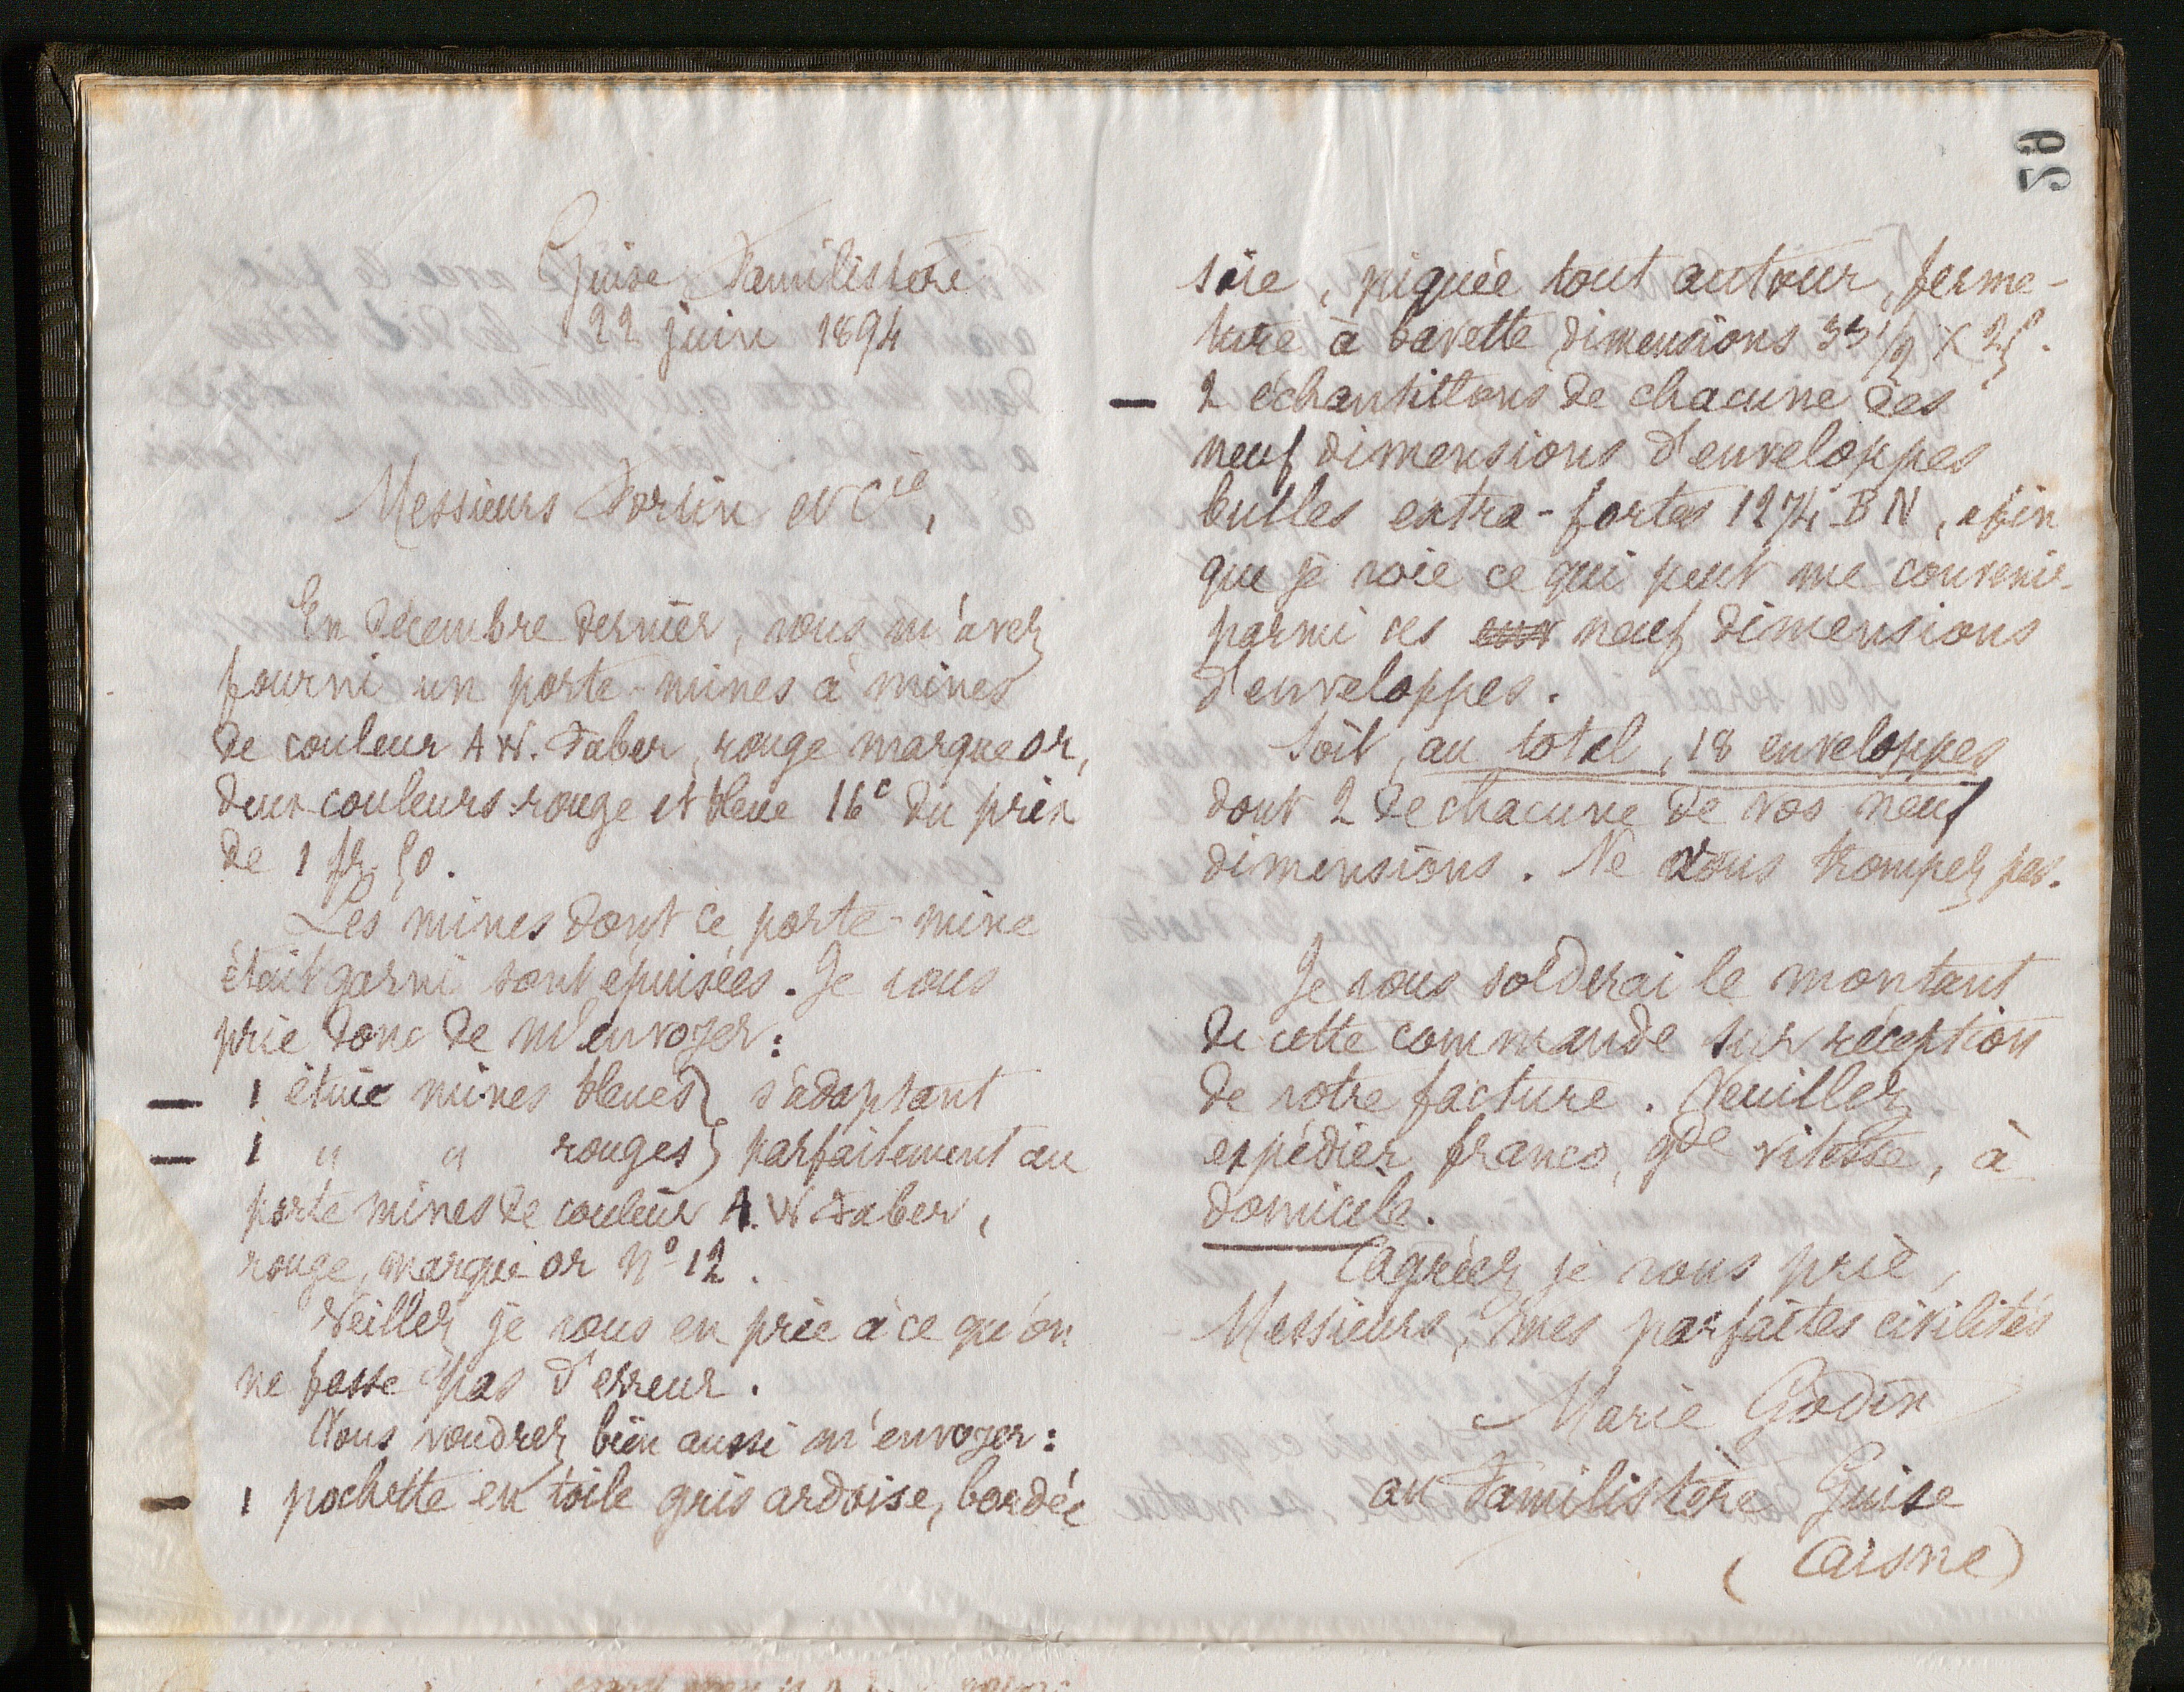 Guise Familistère
22 juin 1894
Messieurs Fortin et Cie,
En décembre dernier, vous m'avez
fourni un porte-mines à mines
de couleur A W. Faber, rouge marque or,
deux couleurs rouge et bleue 16c du prix
de 1 fr. 50.
Les mines dont ce porte-mine
était garni sont épuisées. Je vous
prie donc de m'envoyer :
— 1 étui mines bleues } s'adaptant
— 1 " " rouges } parfaitement au
porte mines de couleur A. W Faber,
rouge, marque or No 12.
Veillez je vous en prie à ce qu'on
ne fasse pas d'erreur.
Vous voudrez bien aussi m'envoyer :
— 1 pochette en toile gris ardoise, bordée
50
soie, piquée tout autour, ferme-
ture à bavette, dimensions 33 1/2 X 25.
— 2 échantillons de chacune des
neuf dimensions d'enveloppes
bulles extra-fortes 1274 BN, afin
que je voie ce qui peut me convenir
parmi ces neuf dimensions
d'enveloppes.
Soit, au total, 18 enveloppes
dont 2 de chacune de vos neuf
dimensions. Ne vous trompez pas.
Je vous solderai le montant
de cette commande sur réception
de votre facture. Veuillez
expédier franco, gde vitesse, à
domicile.
Agréez je vous prie,
Messieurs, mes parfaites civilités
Marie Godin
au Familistère Guise
(Aisne)